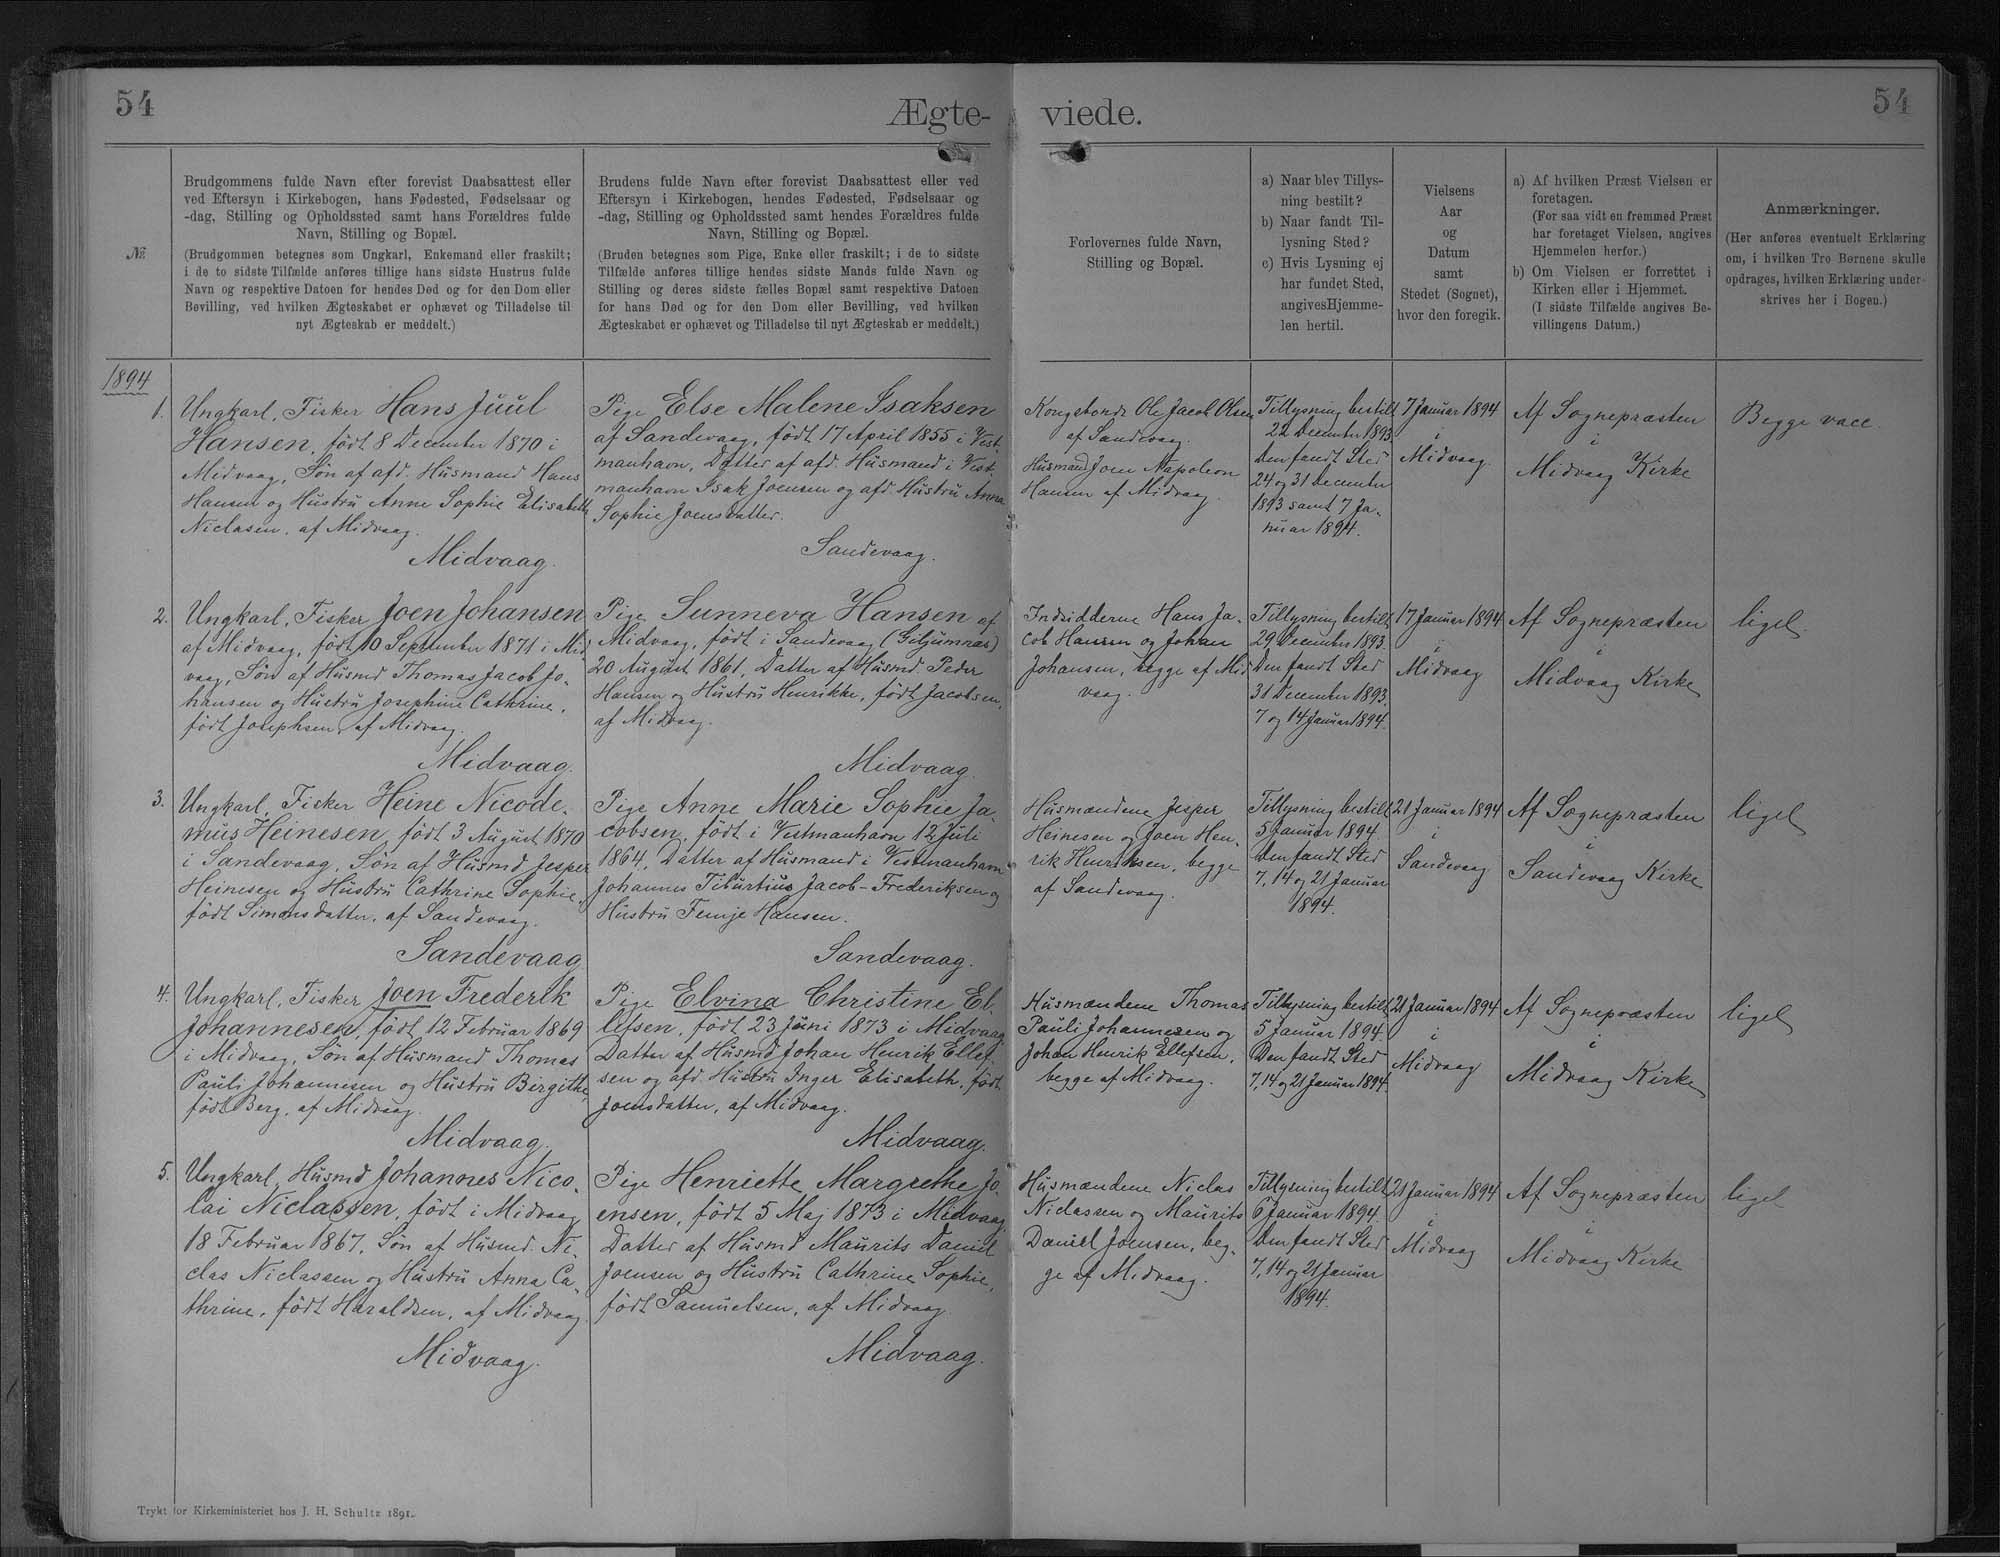 54
Ægte-
viede.
54
№
Brudgommens fulde Navn efter forevist Daabsattest eller
ved Eftersyn i Kirkebogen, hans Fødested, Fødselsaar og
-dag, Stilling og Opholdssted samt hans Forældres fulde
Navn, Stilling og Bopæl.
(Brudgommen betegnes som Ungkarl, Enkemand eller fraskilt;
i de to sidste Tilfælde anføres tillige hans sidste Hustrus fulde
Navn og respektive Datoen for hendes Død og for den Dom eller
Bevilling, ved hvilken Ægteskabet er ophævet og Tilladelse til
nyt Ægteskab er meddelt.)
Brudens fulde Navn efter forevist Daabsattest eller ved
Eftersyn i Kirkebogen, hendes Fødested, Fødselsaar og
-dag, Stilling og Opholdssted samt hendes Forældres fulde
Navn, Stilling og Bopæl.
(Bruden betegnes som Pige, Enke eller fraskilt; i de to sidste
Tilfælde anføres tillige hendes sidste Mands fulde Navn og
Stilling og deres sidste fælles Bopæl samt respektive Datoen
for hans Død og for den Dom eller Bevilling, ved hvilken
Ægteskabet er ophævet og Tilladelse til nyt Ægteskab er meddelt.)
Forlovernes fulde Navn,
Stilling og Bopæl.
a) Naar blev Tillys-
ning bestilt?
b) Naar fandt Til-
lysning Sted?
c) Hvis Lysning ej
har fundet Sted,
angives Hjemme-
len hertil.
Vielsens
Aar
og
Datum
samt
Stedet (Sognet),
hvor den foregik.
a) Af hvilken Præst Vielsen er
foretagen.
(For saa vidt en fremmed Præst
har foretaget Vielsen, angives
Hjemmelen herfor.)
b) Om Vielsen er forrettet i
Kirken eller i Hjemmet.
(I sidste Tilfælde angives Be-
villingens Datum.)
Anmærkninger.
(Her anføres eventuelt Erklæring
om, i hvilken Tro Børnene skulle
opdrages, hvilken Erklæring under-
skrives her i Bogen.)
1894
1.
Ungkarl, Fisker Hans Juul
Hansen, født 8 December 1870 i
Midvaag, Søn af afd. Husmand Hans
Hansen og Hustru Anne Sophie Elisabeth
Niclasen, af Midvaag.
Midvaag.
Pige Else Malene Isaksen
af Sandevaag, født 17 April 1855 i Vest-
manhavn, Datter af afd. Husmand i Vest-
manhavn Isak Joensen og afd. Hustru Anna
Sophie Joensdatter.
Sandevaag.
Kongsbonde Ole Jacob Olsen
af Sandevaag.
Husmand Joen Napoleon
Hansen af Midvaag.
Tillysning bestilt
22 December 1893
Den fandt Sted
24 og 31 December
1893 samt 7 Ja-
nuar 1894.
7 Januar 1894
i
Midvaag.
Af Sognepræsten
i
Midvaag Kirke
Begge vacc.
2.
Ungkarl, Fisker Joen Johansen
af Midvaag, født 10 September 1871 i Mid-
vaag, Søn af Husmd Thomas Jacob Jo-
hansen og Hustru Josephine Cathrine,
født Josephsen, af Midvaag.
Midvaag.
Pige Sunneva Hansen af
Midvaag, født i Sandevaag (Giljumnæs)
20 August 1861, Datter af Husmd. Peder
Hansen og Hustru Henrikke, født Jacobsen,
af Midvaag.
Midvaag.
Indsidderne Hans Ja-
cob Hansen og Johan
Johansen, begge af Mid-
vaag.
Tillysning bestilt
29 December 1893.
Den fandt Sted
31 December 1893,
7 og 14 Januar 1894.
17 Januar 1894
i
Midvaag
Af Sognepræsten
i
Midvaag Kirke
ligel.
3.
Ungkarl, Fisker Heine Nicode-
mus Heinesen, født 3 August 1870
i Sandevaag, Søn af Husmd Jesper
Heinesen og Hustru Cathrine Sophie,
født Simonsdatter, af Sandevaag.
Sandevaag
Pige Anne Marie Sophie Ja-
cobsen, født i Vestmanhavn 12 Juli
1864, Datter af Husmand i Vestmanhavn
Johannes Tiburtius Jacob-Frederiksen og
Hustru Femje Hansen.
Sandevaag.
Husmændene Jesper
Heinesen og Joen Hen-
rik Henriksen, begge
af Sandevaag.
Tillysning bestilt
5 Januar 1894.
Den fandt Sted
7, 14 og 21 Januar
1894.
21 Januar 1894
i
Sandevaag
Af Sognepræsten
i
Sandevaag Kirke
ligel
4.
Ungkarl, Fisker Joen Frederik
Johannesen, født 12 Februar 1869
i Midvaag, Søn af Husmand Thomas
Pauli Johannesen og Hustru Birgithe,
født Berg, af Midvaag.
Midvaag.
Pige Elvina Christine El-
lefsen, født 23 Juni 1873 i Midvaag
Datter af Husmd Johan Henrik Ellef-
sen og afd. Hustru Inger Elisabeth, født
Joensdatter, af Midvaag.
Midvaag.
Husmændene Thomas
Pauli Johannesen og
Johan Henrik Ellefsen,
begge af Midvaag.
Tillysning bestilt
5 Januar 1894.
Den fandt Sted
7, 14 og 21 Januar 1894.
21 Januar 1894
i
Midvaag
Af Sognepræsten
i
Midvaag Kirke
ligel
5.
Ungkarl, Husmd Johannes Nico-
lai Niclassen, født i Midvaag
18 Februar 1867, Søn af Husmd. Ni-
clas Niclassen og Hustru Anna Ca-
thrine, født Haraldsen, af Midvaag.
Midvaag.
Pige Henriette Margrethe Jo-
ensen, født 5 Maj 1873 i Midvaag,
Datter af Husmd Maurits Daniel
Joensen og Hustru Cathrine Sophie,
født Samuelsen, af Midvaag.
Midvaag.
Husmændene Niclas
Niclassen og Maurits
Daniel Joensen, beg-
ge af Midvaag.
Tillysning bestilt
6 Januar 1894.
Den fandt Sted
7, 14 og 21 Januar
1894.
21 Januar 1894
i
Midvaag
Af Sognepræsten
i
Midvaag Kirke
ligel
Trykt for Kirkeministeriet hos J. H. Schultz 1891.